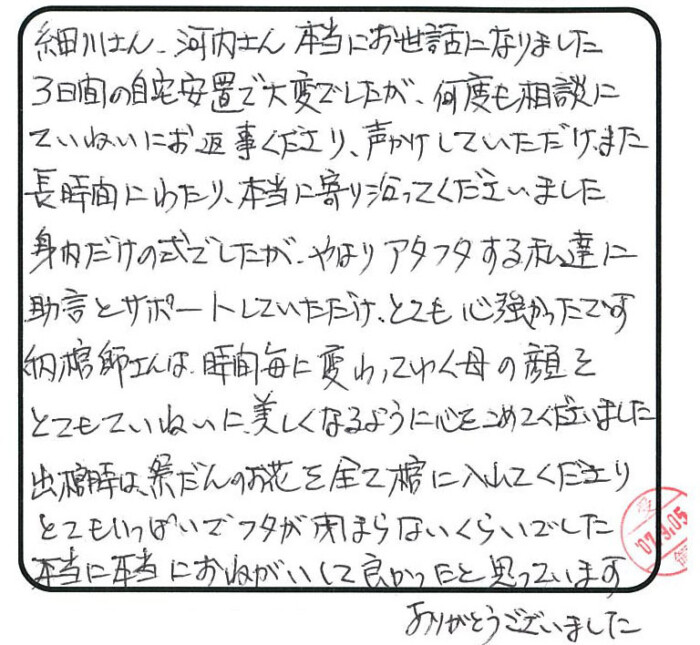 細川さん、河内さん 本当にお世話になりました
3日間の自宅安置で大変でしたが、何度も相談に
ていねいにお返事くださり、声かけしていただけ、また
長時間にわたり、本当に寄り沿ってくださいました
身内だけの式でしたが、やはりアタフタする私達に
助言とサポートしていただけ、とても心強かったです
納棺師さんは、時間毎に変わってゆく母の顔を
とてもていねいに、美しくなるように心をこめてくださいました
出棺時は、祭だんのお花を全て棺に入れてくださり
とてもいっぱいでフタが閉まらないくらいでした
本当に本当におねがいして良かったと思っています
ありがとうございました
'07.9.05